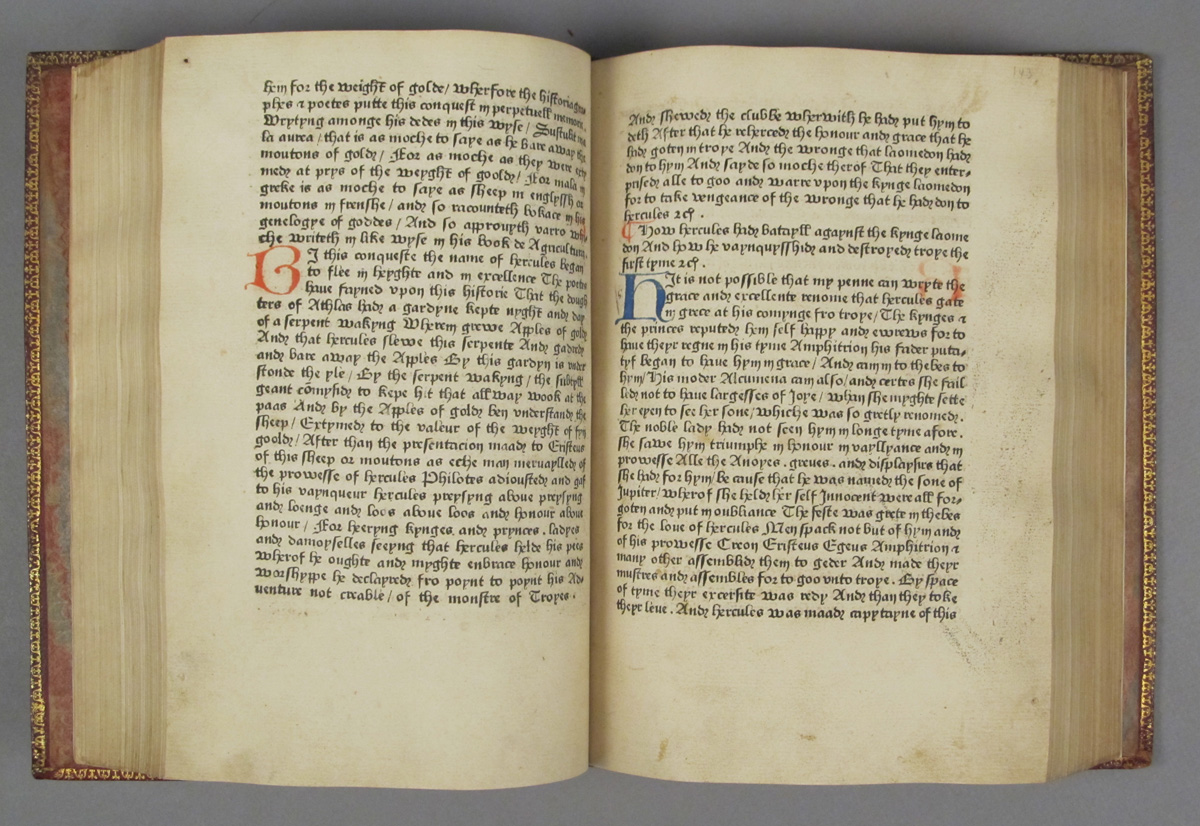 hym for the weight of golde/ wherfore the historiagra
phes ⁊ poetes putte this conquest in perpetuell memore.
Wrytyng amonge his dedes in this wyse/ Sustulit ma
la aurea/ that is as moche to saye as he bare away the
moutons of gold/ For as moche as they were exty
med at prys of the weyght of goold/ For mala in
greke is as moche to saye as sheep in englyssh or
moutons in frenshe/ and so racounteth bokace in his
genelogye of goddes/ And so approuyth varro whi
che writeth in like wyse in his book de Agricultura.
BI this conqueste the name of hercules began
to flee in heyghte and in excellence The poetes
haue fayned vpon this historie That the dough
ters of Athlas had a gardyne kepte nyght and day
of a serpent wakyng Wherein grewe Apples of gold
And that hercules slewe this serpente And gadred
and bare away the Apples By this gardyn is vnder
stonde the yle/ By the serpent wakyng/ the subtyll
geant comysid to kepe hit that allway wook at the
paas And by the Apples of gold ben vnderstande the
sheep/ Extymed to the valeur of the weyght of fyn
goold/ After than the presentacion maad to Eristeus
of this sheep or moutons as eche man meruaylled of
the prowesse of hercules Philotes adiousted and gaf
to his vaynqueur hercules preysyng aboue preysyng
and loenge and loos aboue loos and honour aboue
honour/ For heeryng kynges. and prynces. ladyes
and damoyselles seeyng that hercules helde his pees
wherof he oughte and myghte enbrace honour and
worshyppe he declayred fro poynt to poynt his Ad-
uenture not creable/ of the monstre of Troyes.
And shewed the clubbe wherwith he had put hym to
deth After that he reherced the honour and grace that he
had goten in troye And the wronge that laomedon had
don to hym And sayde so moche therof That they enter-
prised alle to goo and warre vpon the kynge laomedon
for to take vengeance of the wronge that he had don to
hercules ⁊c.
¶ How hercules had batayll agaynst the kynge laome
don And how he vaynquysshid and destroyed troye the
first tyme ⁊c.
HIt is not possible that my penne can wryte the
grace and excellente renome that hercules gate
in grece at his comynge fro troye/ The kynges ⁊
the princes reputed hem self happy and ewrews for to
haue theyr regne in his tyme Amphitrion his fader puta-
tyf began to haue hym in grace/ And cam in to thebes to
hym/ His moder Alcumena cam also/ and certes she fail
led not to haue largesses of Joye/ whan she myghte sette
her eyen to see her sone/ whiche was so gretly renomed.
The noble lady had not seen hym in longe tyme afore.
she sawe hym triumphe in honour in vayllyance and in
prowesse Alle the Anoyes. greues. and displaysirs that
she had for hym/ be cause that he was named the sone of
Jupiter/ wherof she held her self Innocent were all for-
goten and put in oubliance The feste was grete in thebes
for the loue of hercules Men spack not but of hym and
of his prowesse Creon Eristeus Egeus Amphitrion ⁊
many other assemblid them to geder And made theyr
mustres and assembles for to goo vnto troye. By space
of tyme theyr excersite was redy And than they toke
theyr leue. And hercules was maad capytayne of this